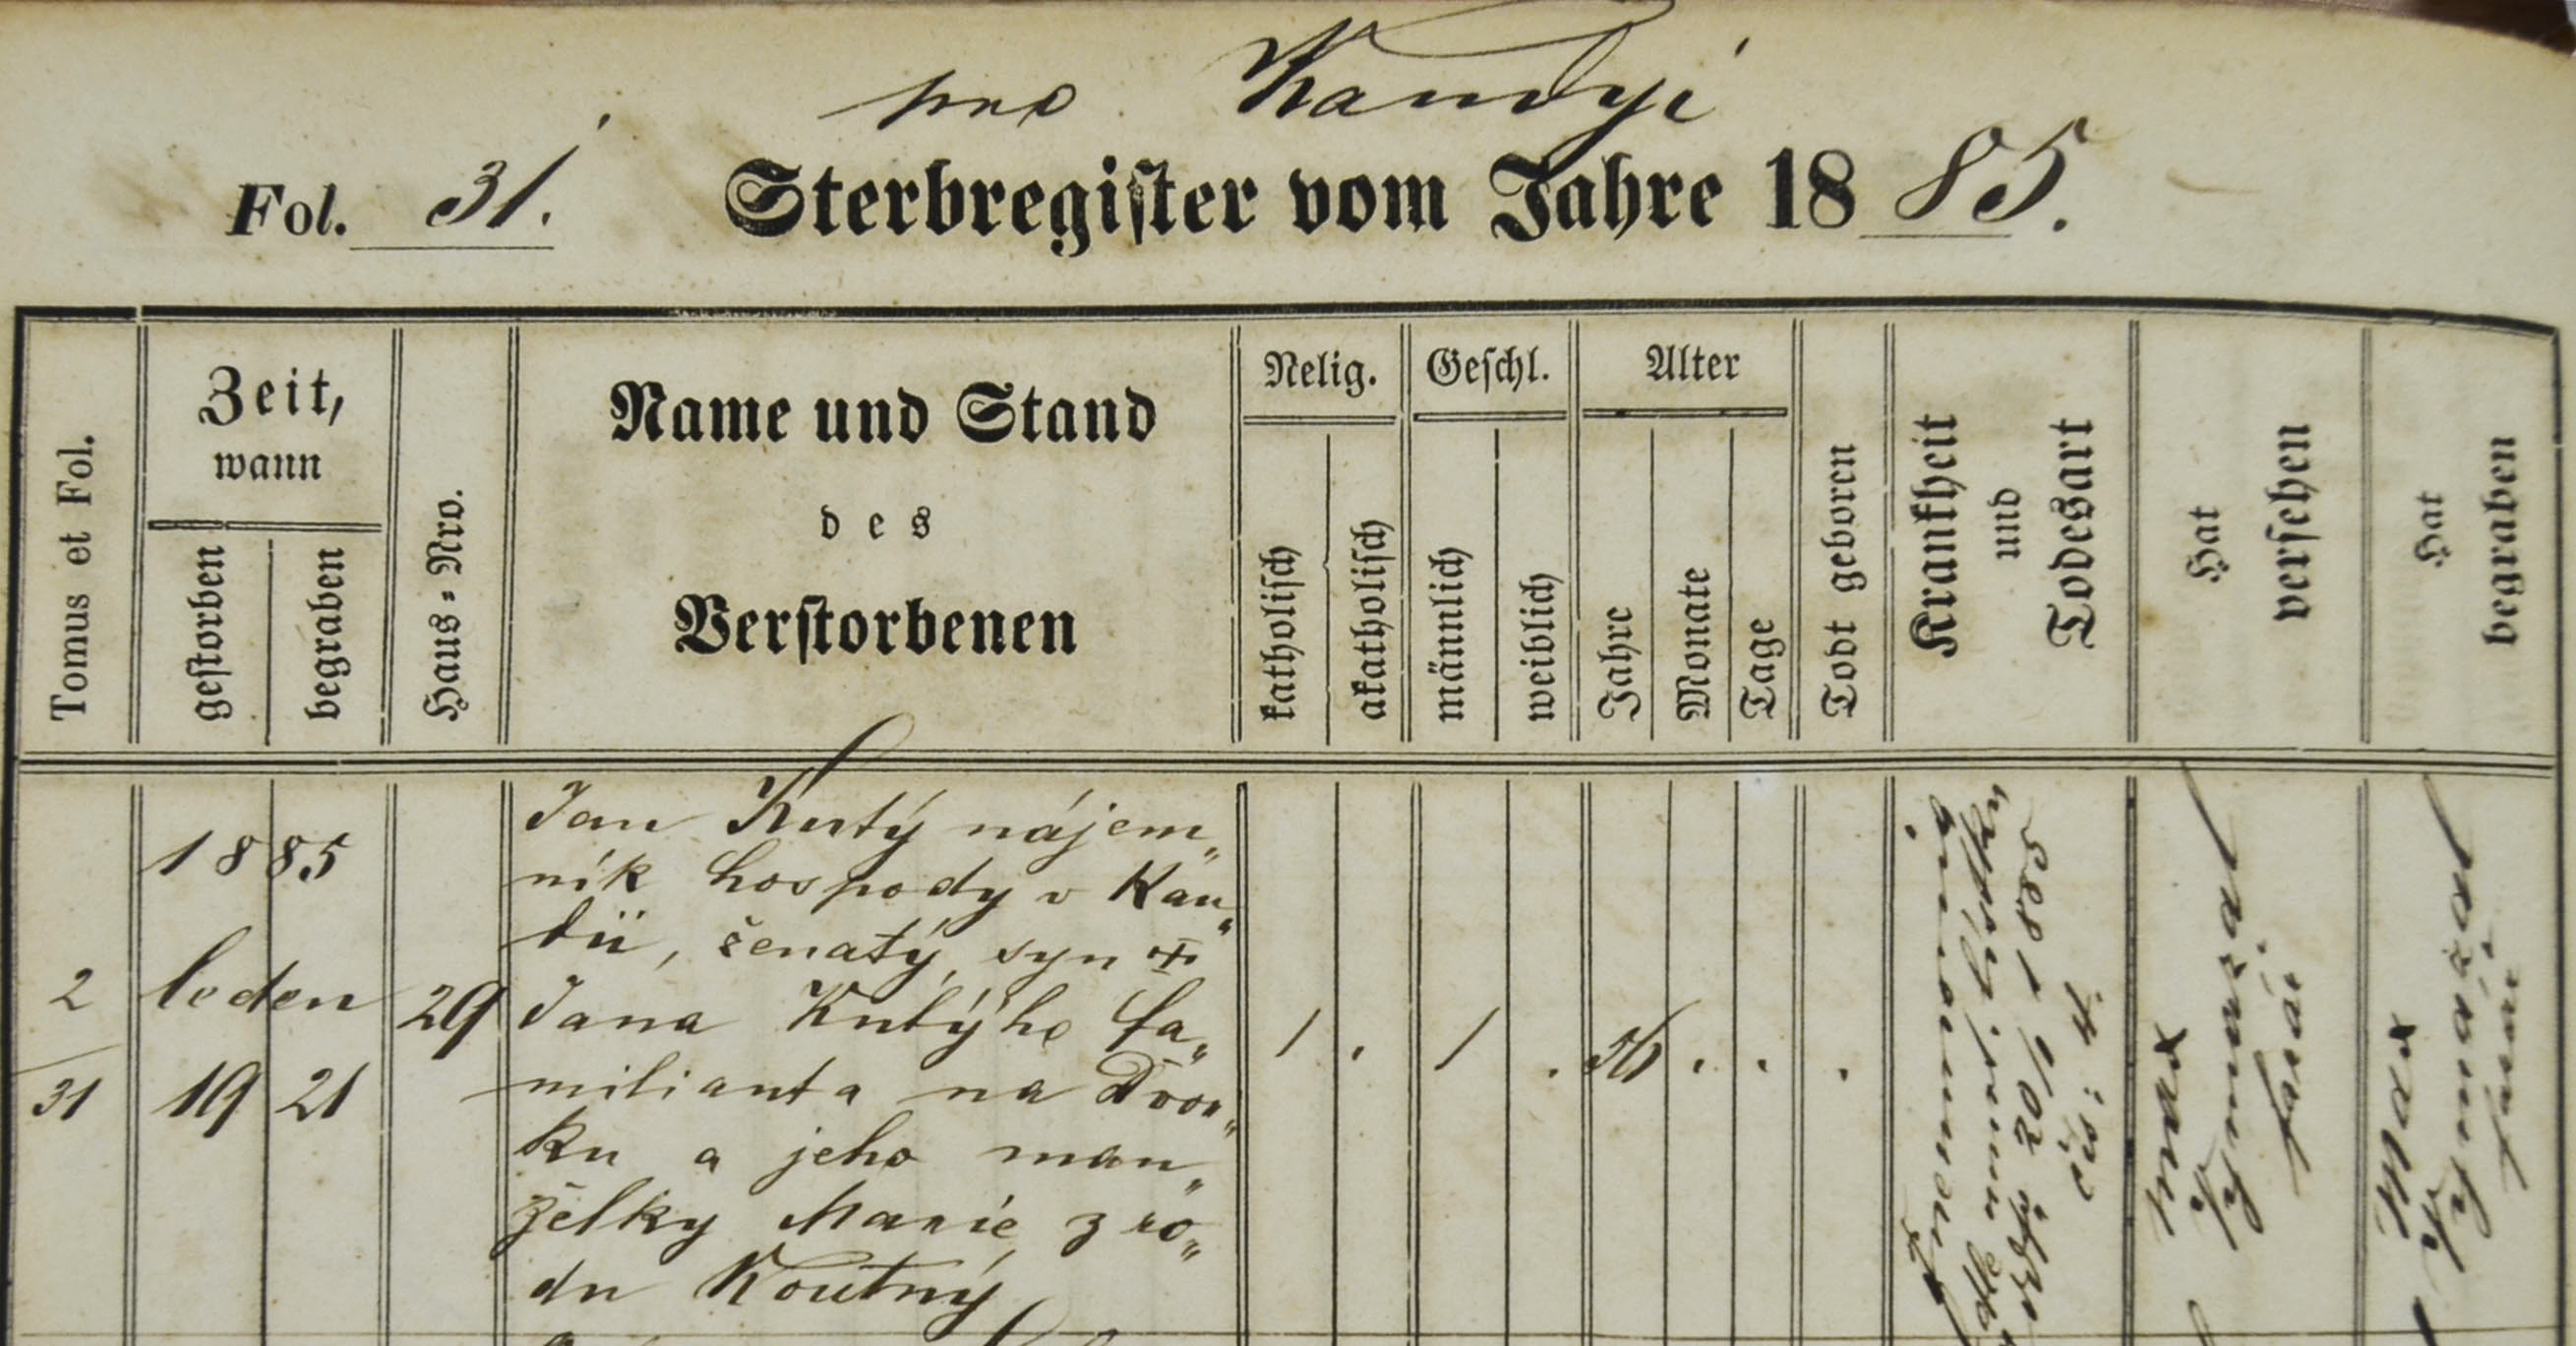 pro Kandyi
Fol. 31. Sterbregister vom Jahre 1885.
Tomus et Fol.
Zeit,
wann
gestorben
begraben
Haus-Nro.
Name und Stand
des
Verstorbenen
Relig.
katholisch
akatholisch
Geschl.
männlich
weiblich
Alter
Jahre
Monate
Tage
Todt geboren
Krankheit
und
Todesart
Hat
versehen
Hat
begraben
2
31
1885
leden
19 21
29
Jan Kutý nájem„
ník hospody v Kan„
dii, ženatý, syn +
Jana Kutýho fa„
milianta na Dvor„
ku a jeho man„
želky Marie z ro„
du Koutný
1 . 1 . 56 . . .
20/1 885
č: 4
Max
farář
Max
farář